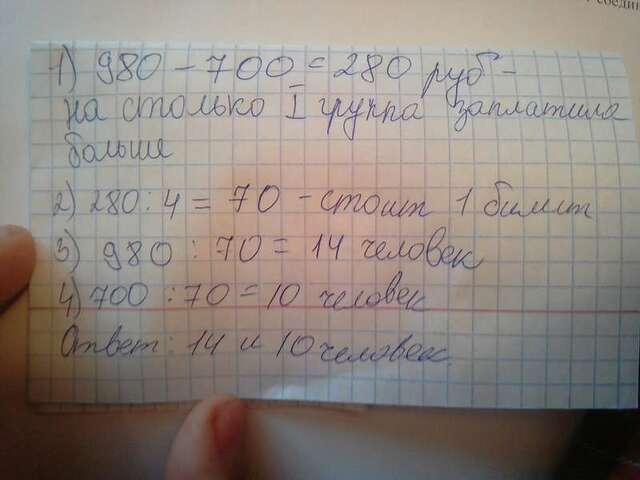 соедин
1) 980 - 700 = 280 руб -
на столько I группа заплатила
больше
2) 280 : 4 = 70 - стоит 1 билет
3) 980 : 70 = 14 человек
4) 700 : 70 = 10 человек
Ответ: 14 и 10 человек.